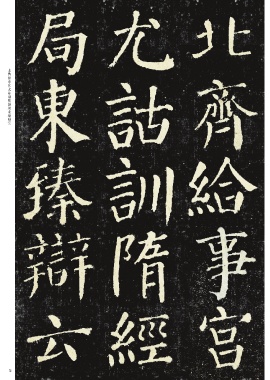 北齊給事宮
尤詁訓隋經
局東臻辯六